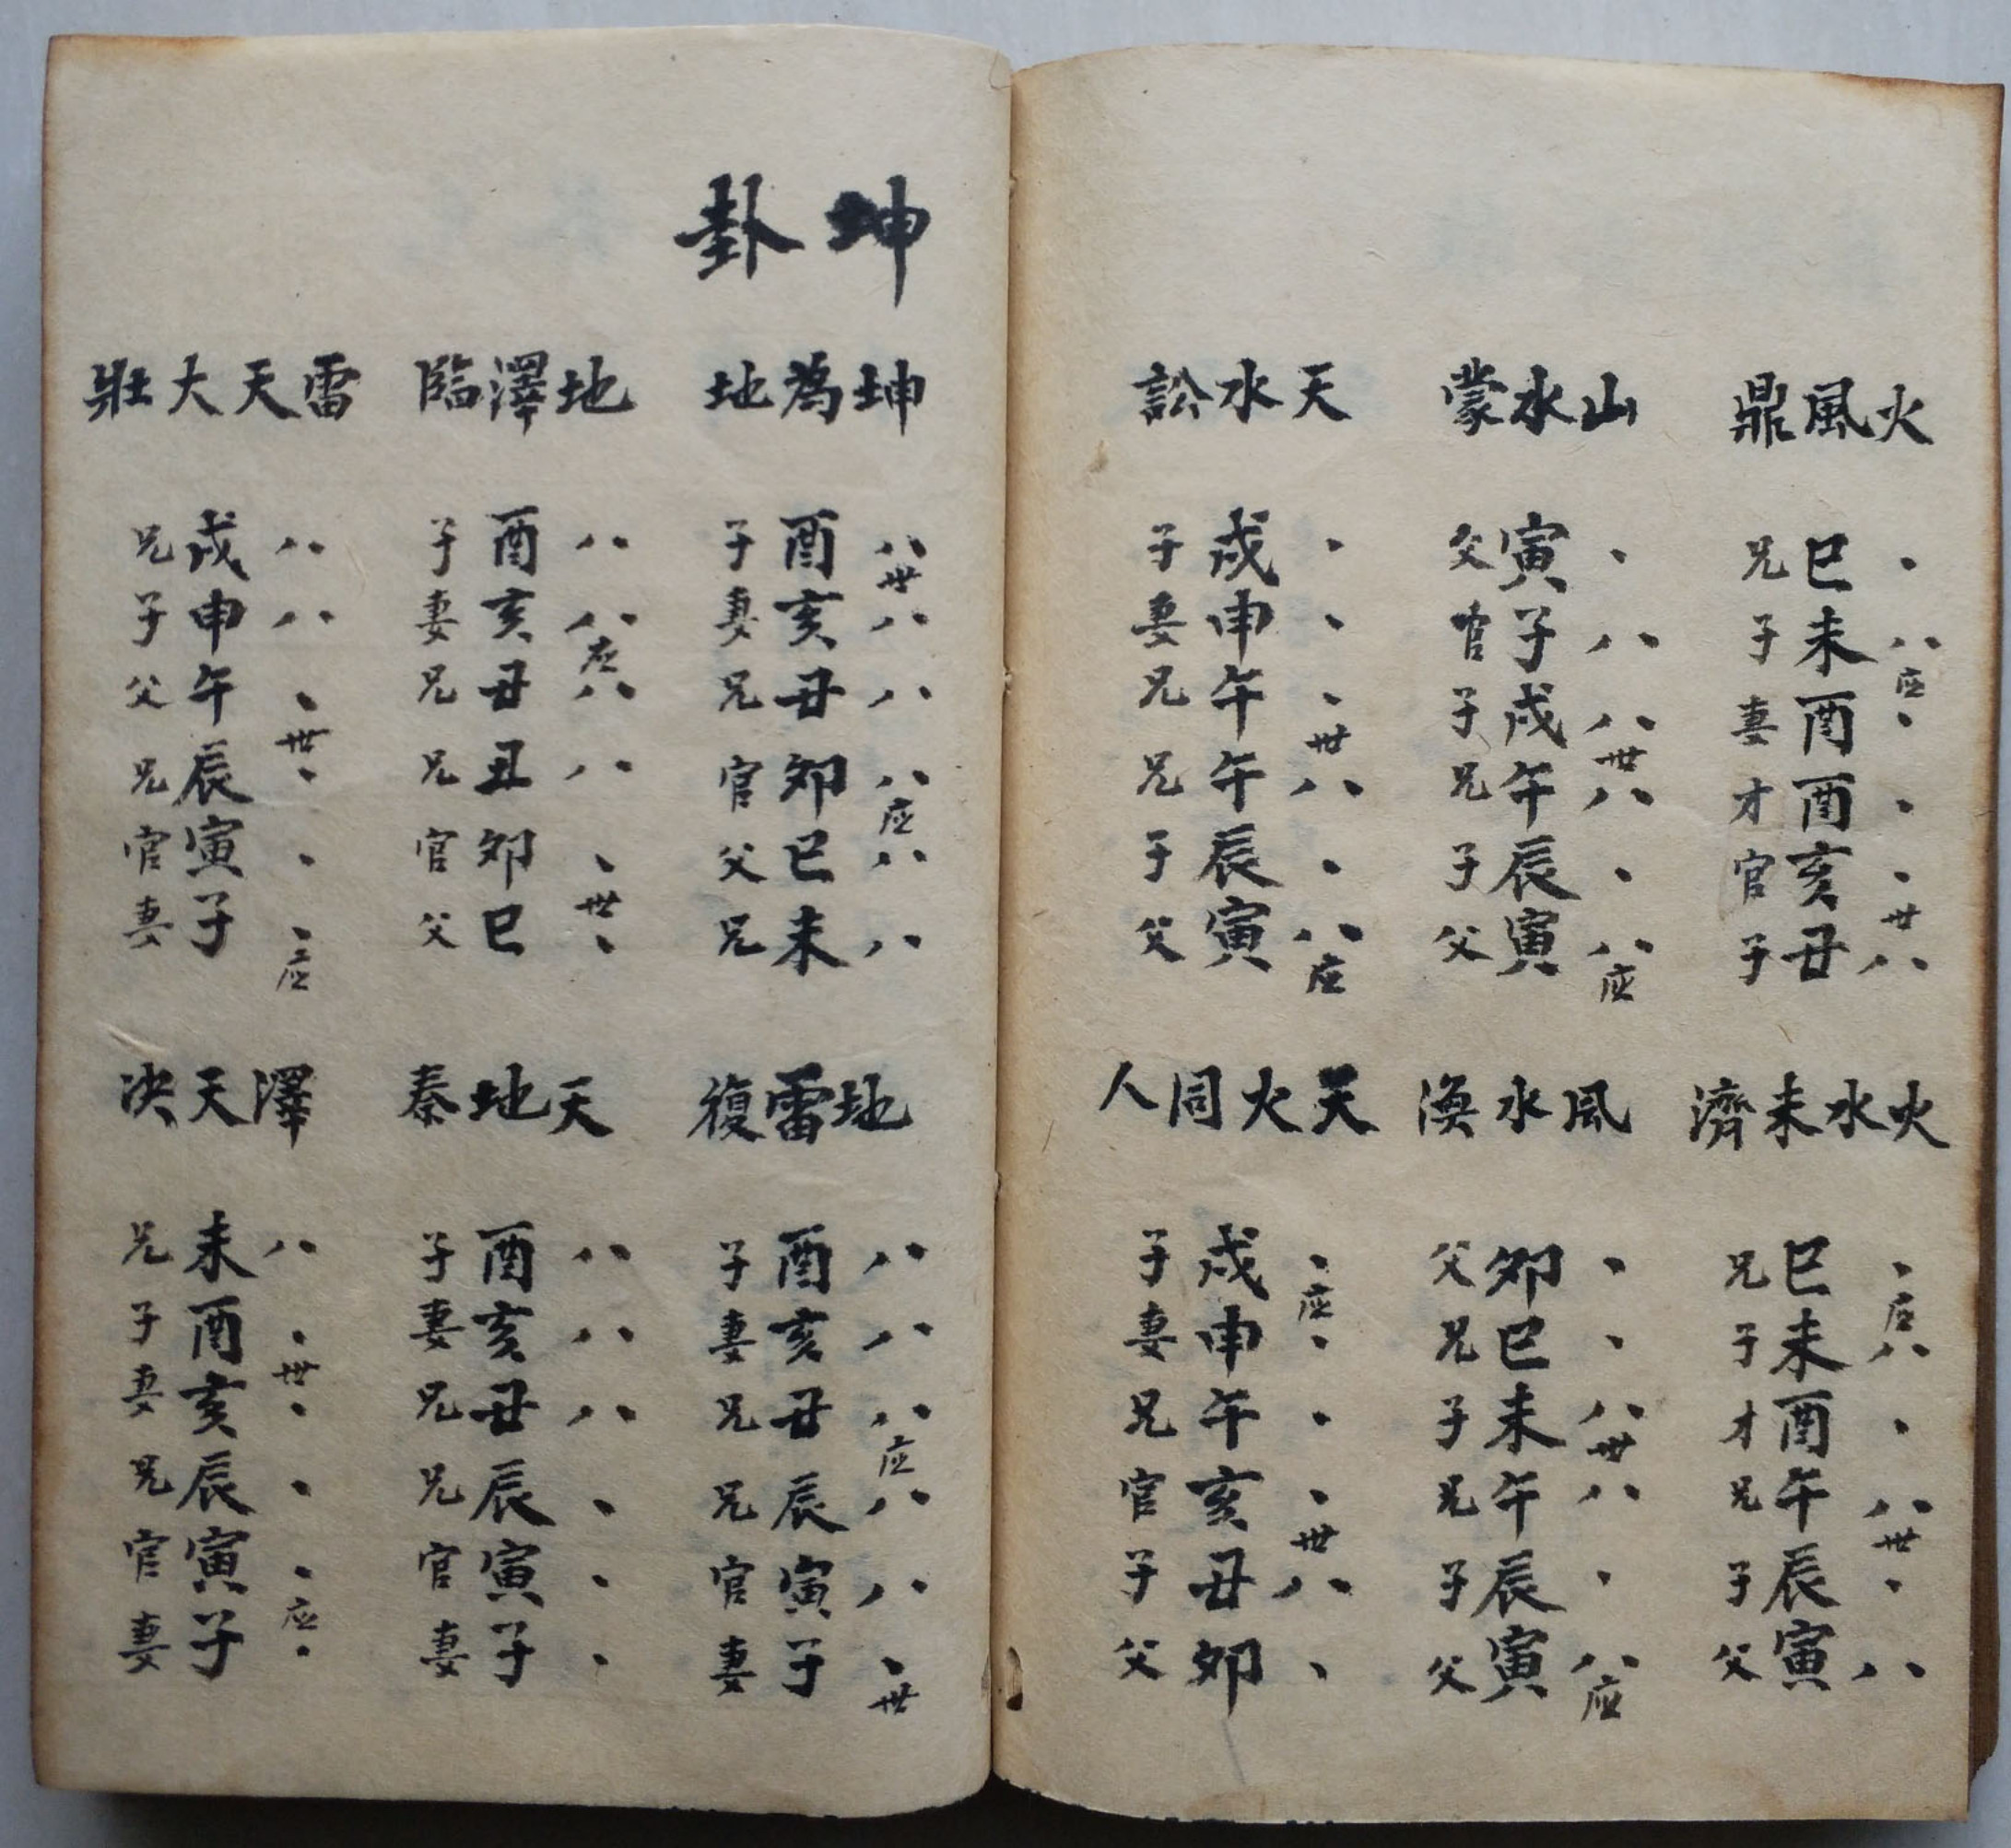 火風鼎
、八应、、、世八
巳未酉酉亥丑
兄子妻才官子
山水蒙
、八八世八、八应
寅子戌午辰寅
父官子兄子父
天水訟
、、、世八、八应
戌申午午辰寅
子妻兄兄子父
火水未濟
、应八、八世、八
巳未酉午辰寅
兄子才兄子父
風水渙
、、八世八、八应
卯巳未午辰寅
父兄子兄子父
天火同人
、应、、、世八、
戌申午亥丑卯
子妻兄官子父
坤卦
坤為地
八世八八八应八八
酉亥丑卯巳未
子妻兄官父兄
地澤臨
八八应八八、世、
酉亥丑丑卯巳
子妻兄兄官父
雷天大壯
八八、世、、、应
戌申午辰寅子
兄子父兄官妻
地雷復
八八八应八八、世
酉亥丑辰寅子
子妻兄兄官妻
天地秦
八八八、、、
酉亥丑辰寅子
子妻兄兄官妻
澤天決
八、世、、、应、
未酉亥辰寅子
兄子妻兄官妻